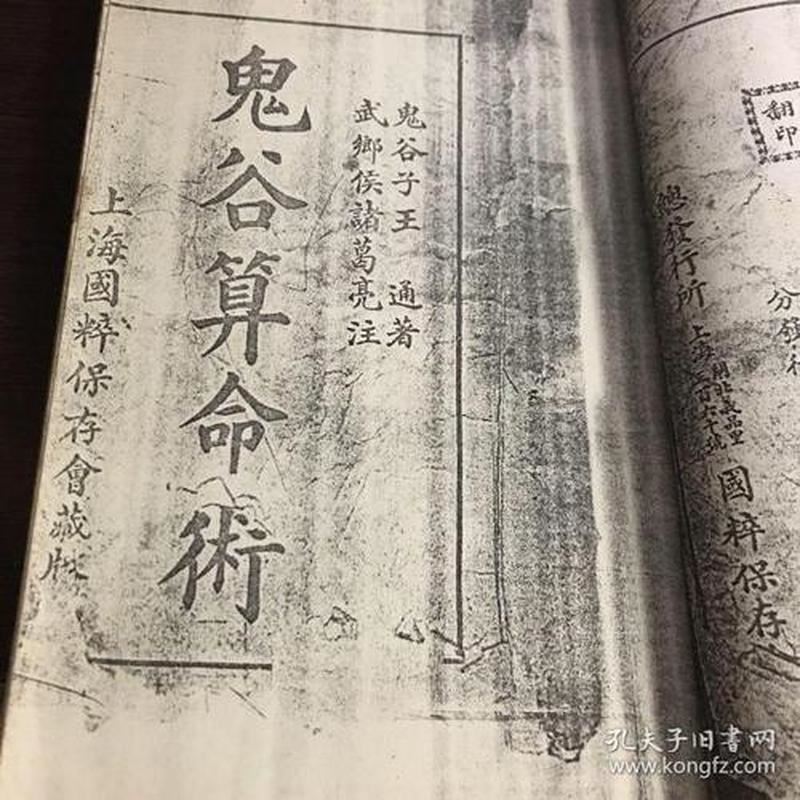 鬼谷子王 通著
武鄉侯諸葛亮注
鬼谷算命術
上海國粹保存會藏版
翻印
總發行所
國粹保存
孔夫子旧書网
www.kongfz.com